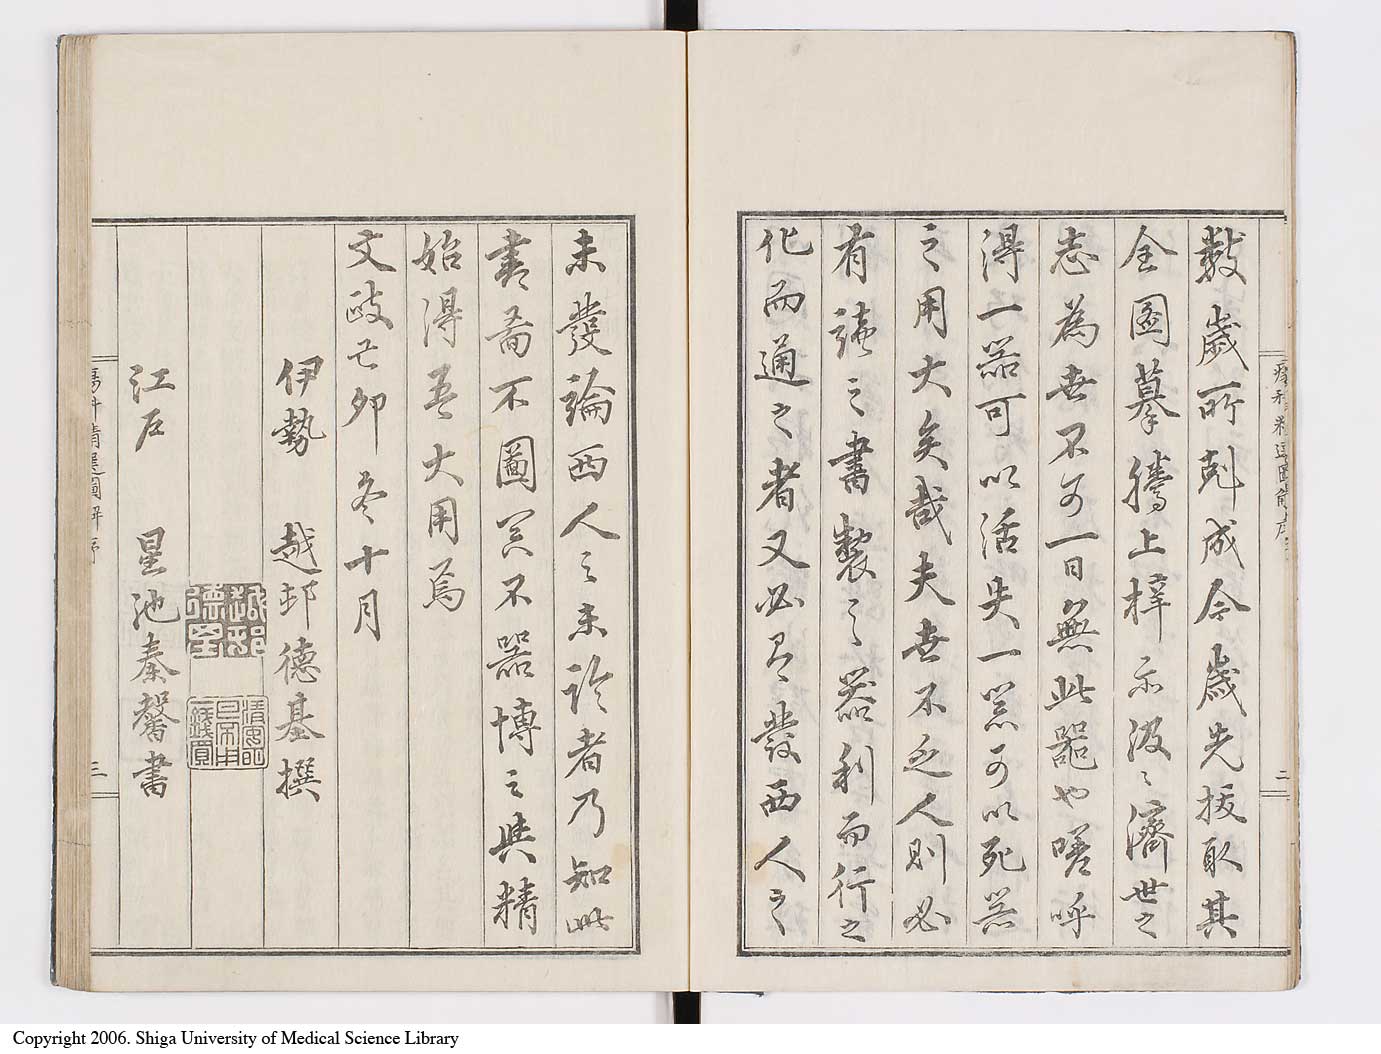 數歲所剋成今歲先抜取其
全圖摹謄上梓示汲〻濟世之
志為世不可一日無此器也嗟呼
得一器可以活失一器可以死器
之用大矣哉夫世不乏人則必
有讀之書製之器利而行之
化而通之者又必有發西人之
未發論西人之未論者乃知此
書爾不圖器不器博之與精
始得吾大用焉
文政己卯冬十月
伊勢 越邨德基撰
江戶 星池秦馨書
瘍科精選圖解序
二
瘍科精選圖解序
三
Copyright 2006. Shiga University of Medical Science Library